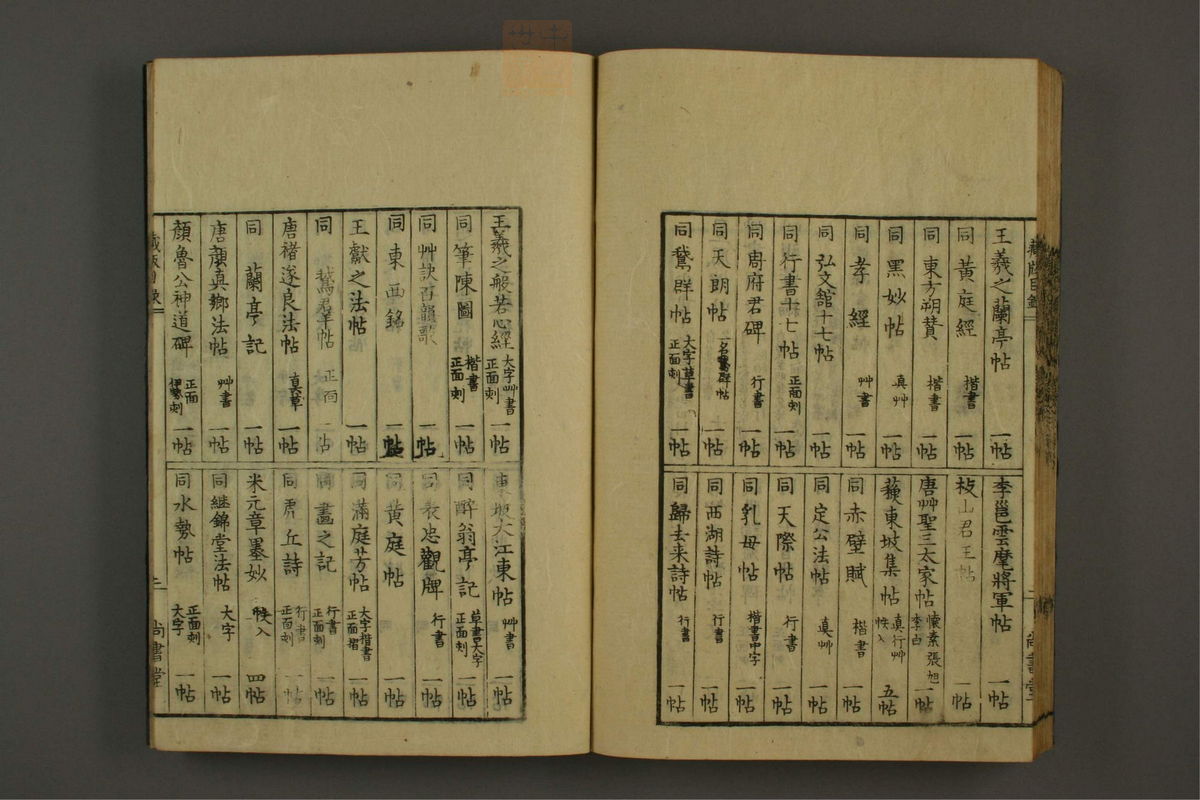 王羲之蘭亭帖 一帖
同 黃庭經 楷書 一帖
同 東方朔賛 楷書 一帖
同 黑妙帖 真艸 一帖
同 孝經 艸書 一帖
同 弘文舘十七帖 一帖
同 行書十七帖 正面刻 一帖
同 周府君碑 行書 一帖
同 天朗帖 一名鵞群帖 一帖
同 鵞群帖 大字草書 正面刻 一帖
李邕雲麾將軍帖 一帖
山君王帖 一帖
唐艸聖三太家帖 懐素 張旭 李白 一帖
蘓東坡集帖 真行艸 帙入 五帖
同 赤壁賦 楷書 一帖
同 定公法帖 真艸 一帖
同 天際帖 行書 一帖
同 乳母帖 楷書中字 一帖
同 西湖詩帖 行書 一帖
同 歸去来詩帖 行書 一帖
王羲之般若心經 大字艸書 正面刻 一帖
同 筆陳圖 楷書 正面刻 一帖
同 艸訣百韻歌 一帖
同 東西銘 一帖
王獻之法帖 一帖
同 鵞群帖 正面 一帖
唐褚遂良法帖 真草 一帖
同 蘭亭記 一帖
唐顔真郷法帖 艸書 一帖
顏魯公神道碑 正面 伊勢刺 一帖
東坡大江東帖 艸書 一帖
同 醉翁亭記 草書大字 正面刻 一帖
同 表忠觀碑 行書 一帖
同 黄庭帖 一帖
同 滿庭芳帖 大字楷書 正面摺 一帖
同 畫之記 行書 正面刻 一帖
同 虎丘詩 行書 正面刻 一帖
米元章墨妙 帙入 四帖
同 継錦堂法帖 大字 一帖
同 水勢帖 正面刻 大字 一帖
尚書堂